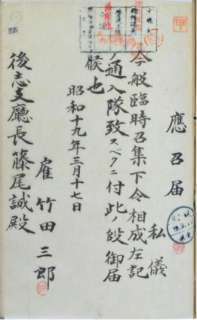 應召届
私儀
今般臨時召集下令相成左記
ノ通入隊致スベクニ付此ノ段御届
候也
昭和十九年三月十七日
雇 竹田三郎
後志支廳長藤尾誠殿